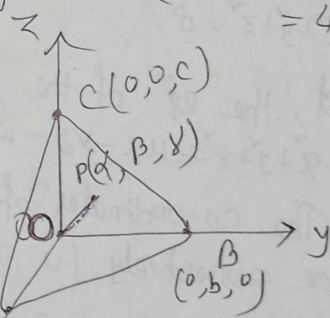 = 4
Z
C(0,0,C)
P(α, β, γ)
O
y
B
(0,b,0)